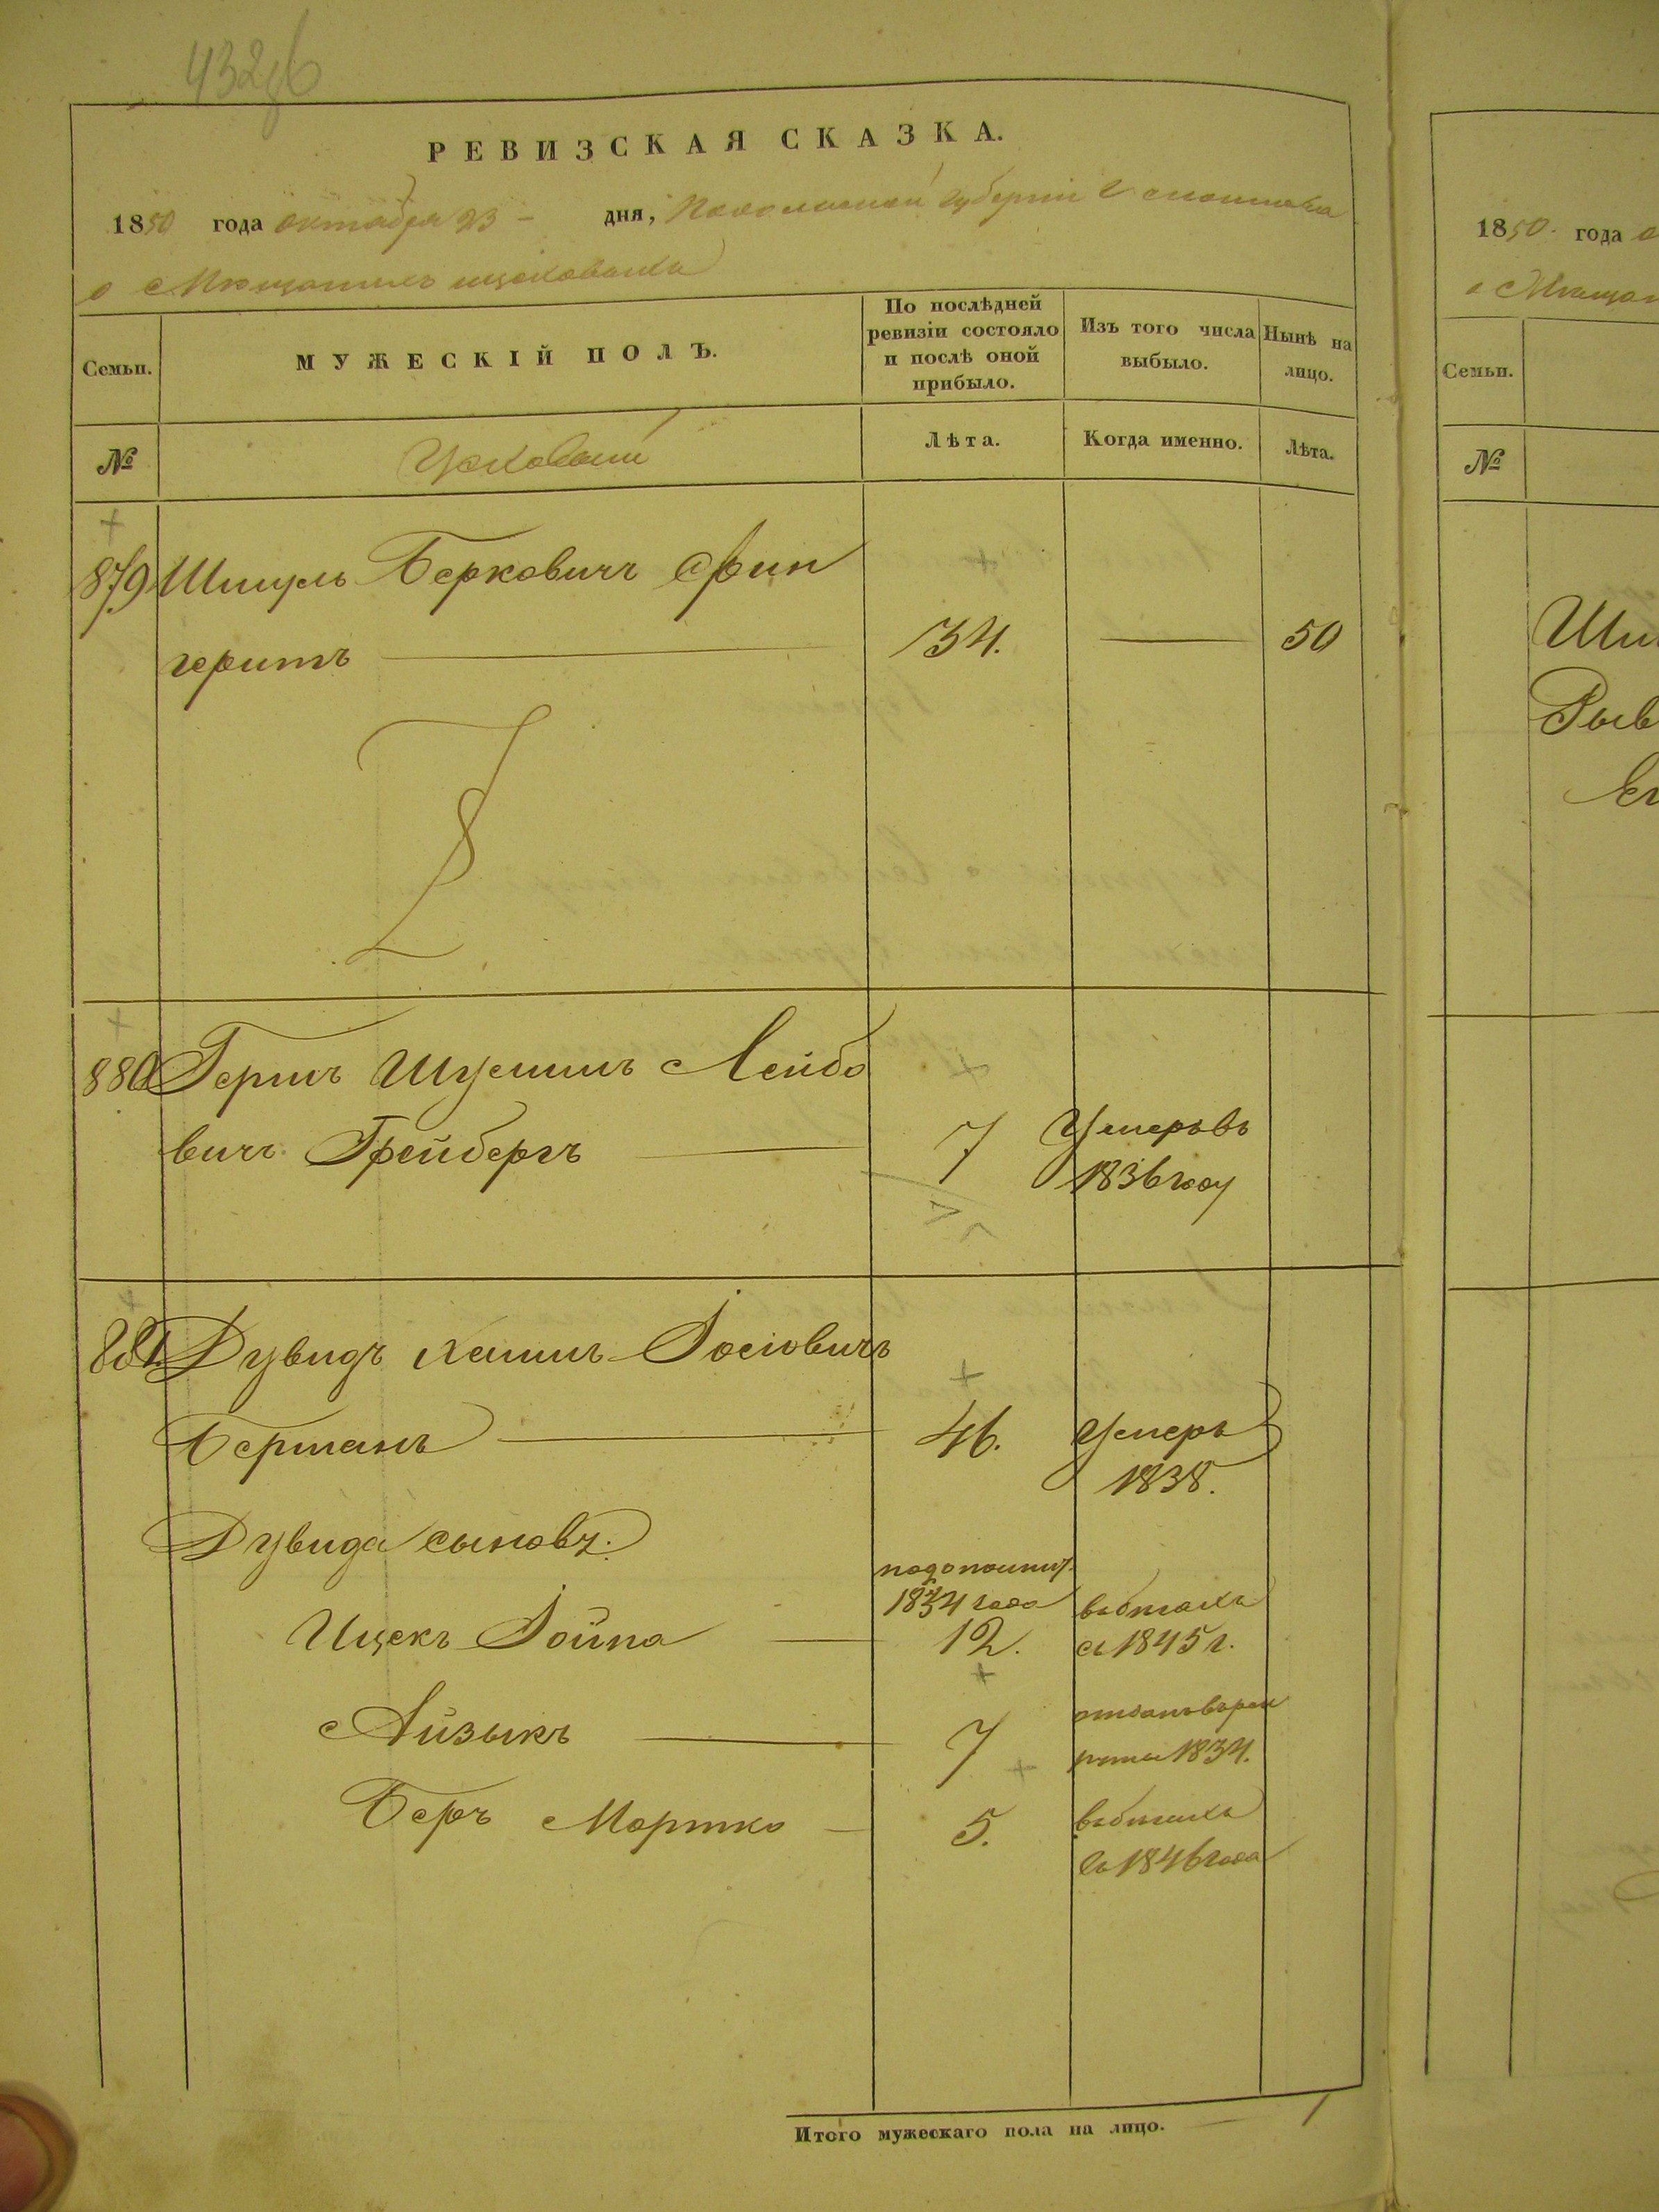 РЕВИЗСКАЯ СКАЗКА.
1850 года октября 23 дня, губернии
о Мещанахъ
Семьи.
МУЖЕСКІЙ ПОЛЪ.
По послѣдней
ревизіи состояло
и послѣ оной
прибыло.
Изъ того числа
выбыло.
Нынѣ на
лицо.
№
Лѣта.
Когда именно.
Лѣта.
879 Шмуль Берковичъ Фин
геритъ 34. 50
880 Гершъ Шулимъ Лейбо
вичъ Грейбергъ 7 Умеръ въ
1836 году
881. Дувидъ Хаимъ Іосіовичъ
Берманъ 46. Умеръ
1838.
Дувида сыновъ:
1834 года въ бѣгахъ
Ицекъ Іойна 12. съ 1845 г.
Айзыкъ 7 отданъ въ рек
руты 1834.
Беръ Мортко 5. въ бѣгахъ
съ 1846 года
Итого мужескаго пола на лицо. 1
1850. года
Семьи.
№